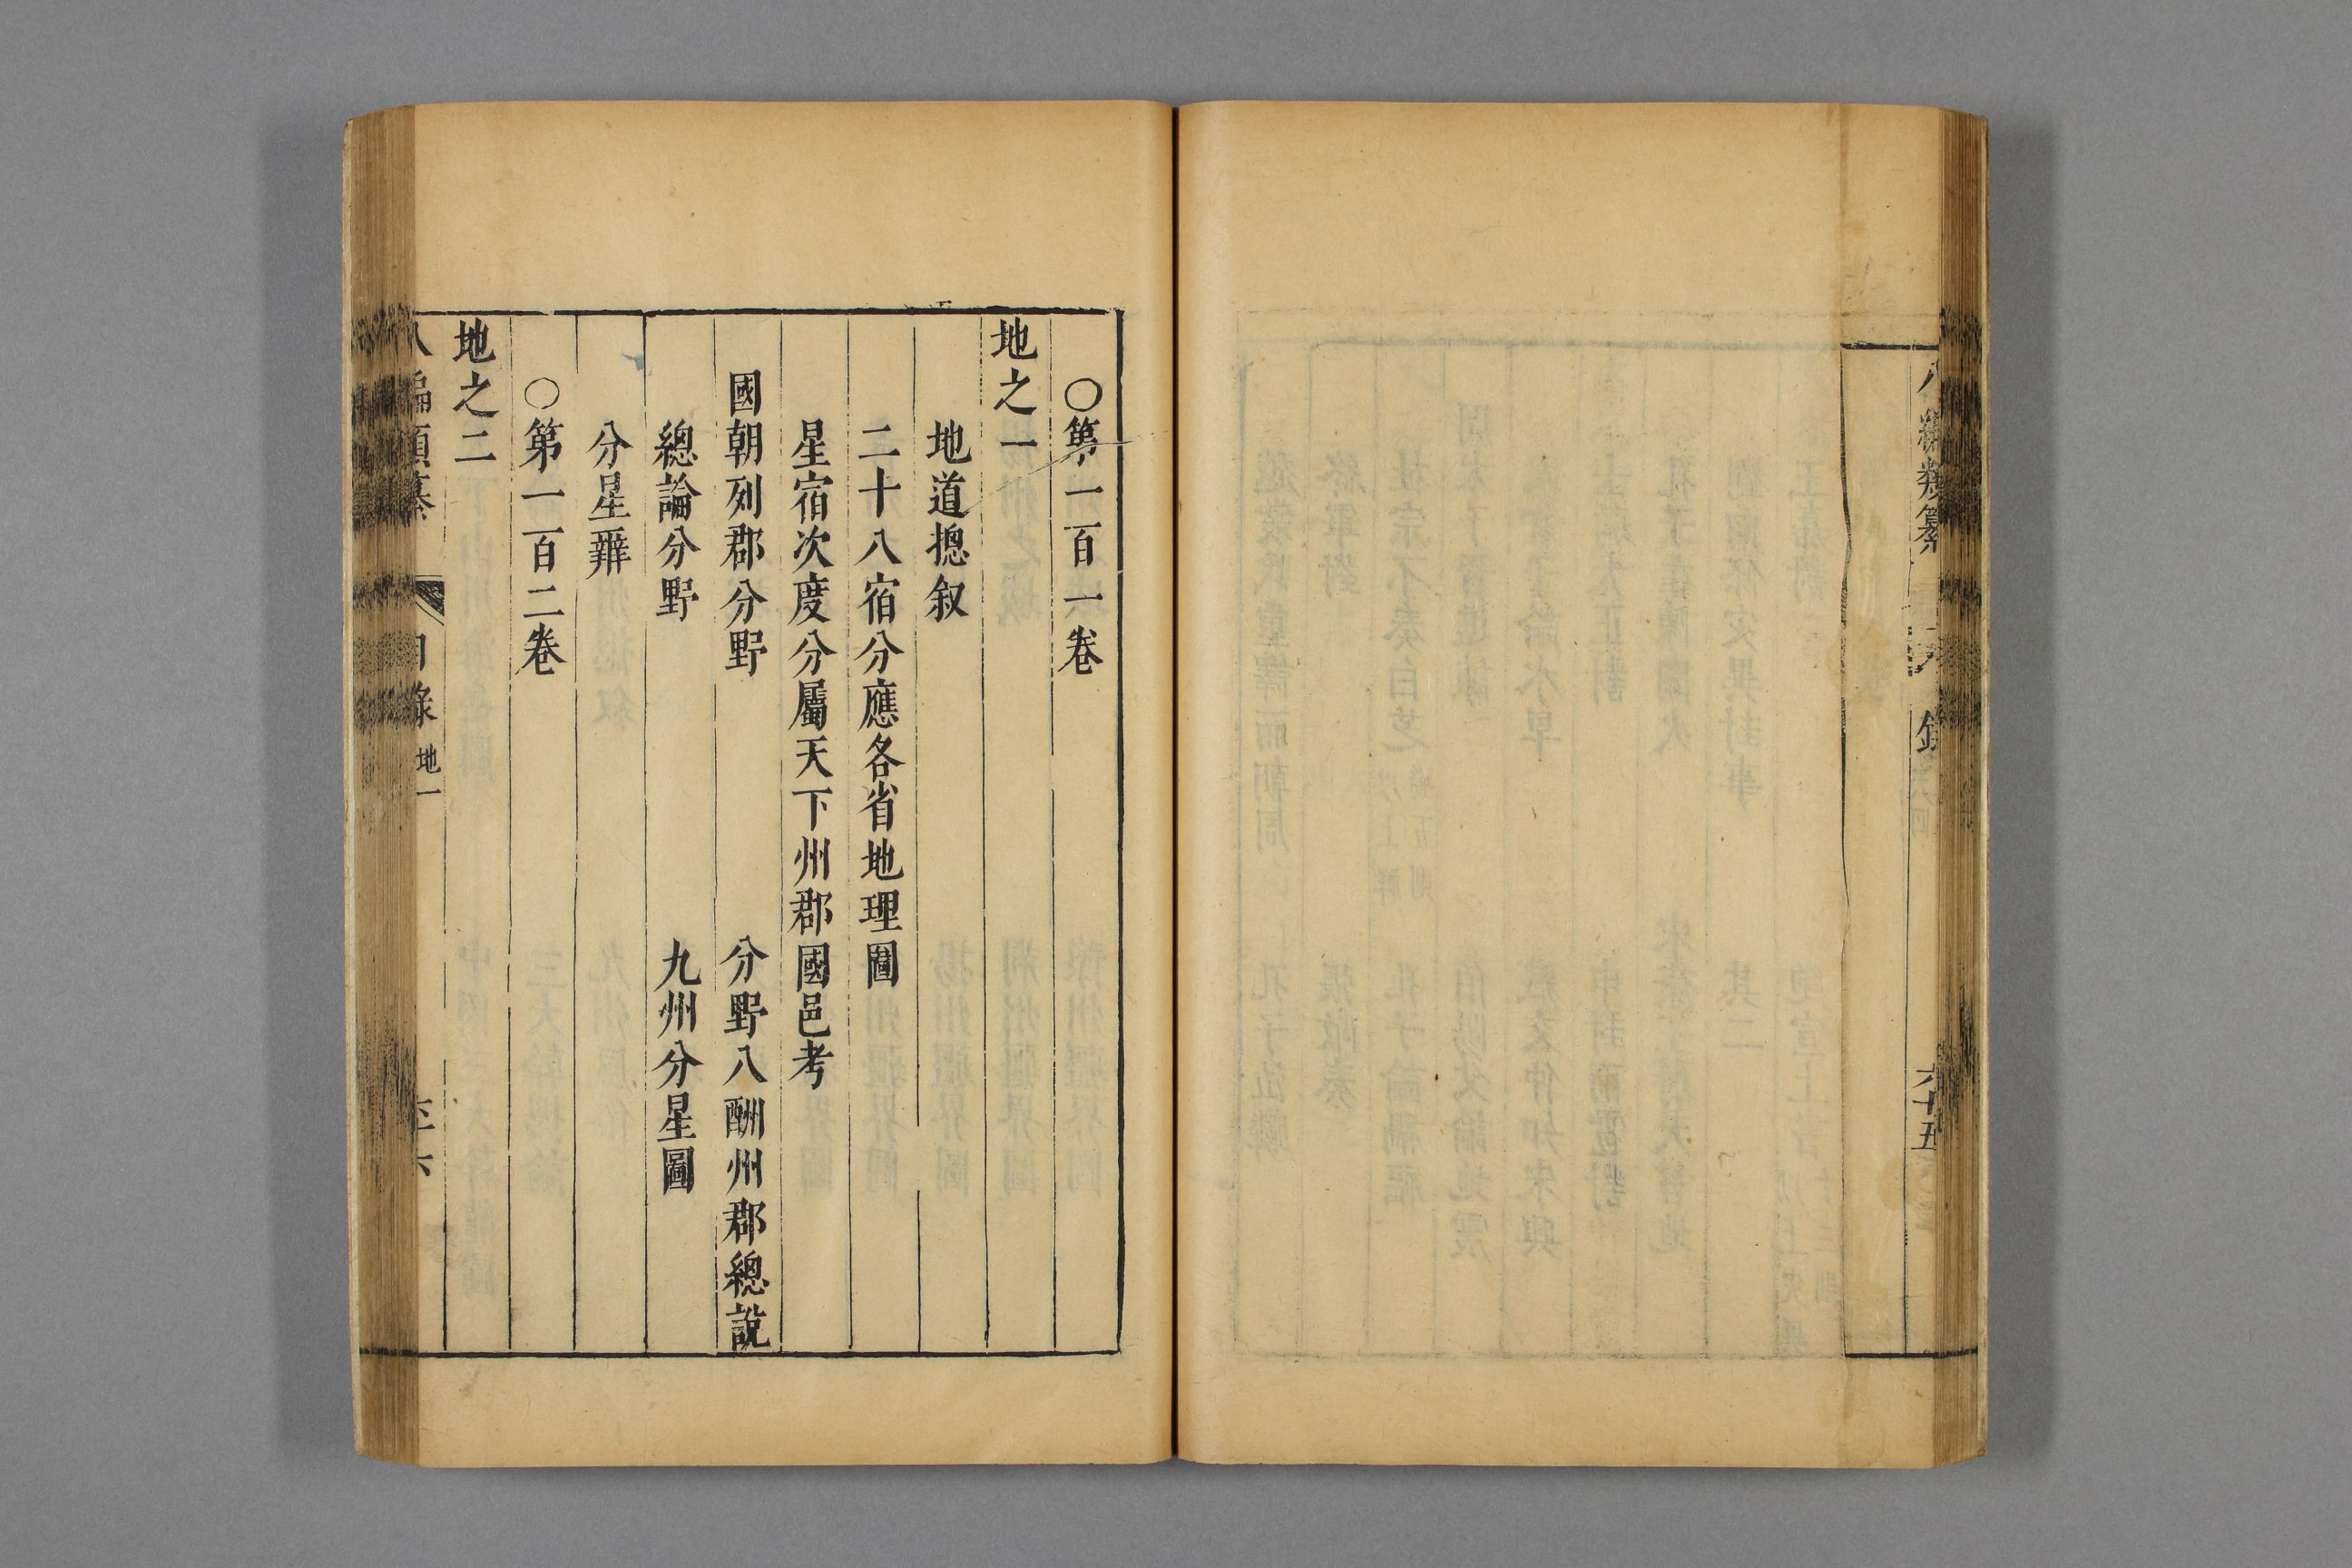 八編類纂
六十五
○第一百一卷
地之一
地道摠叙
二十八宿分應各省地理圖
星宿次度分屬天下州郡國邑考
國朝列郡分野　分野八酬州郡總說
總論分野　九州分星圖
分星辨
○第一百二卷
地之二
八編類纂　目錄　地一